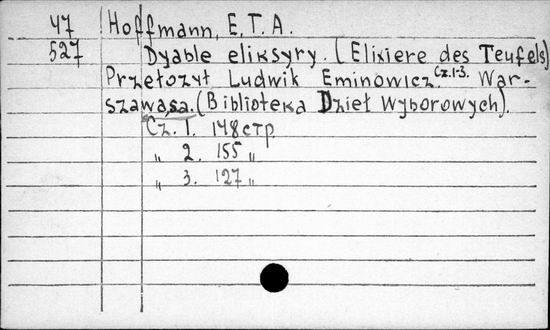 47 Hoffmann, E.T.A.
527 Dyable eliksyry. (Elixiere des Teufels)
Przełożył Ludwik Eminowicz. Cz. 1-3. War-
szawa, s.a. (Biblioteka Dzieł Wyborowych).
Cz. 1. 148 стр.
„ 2. 155 „
„ 3. 127 „